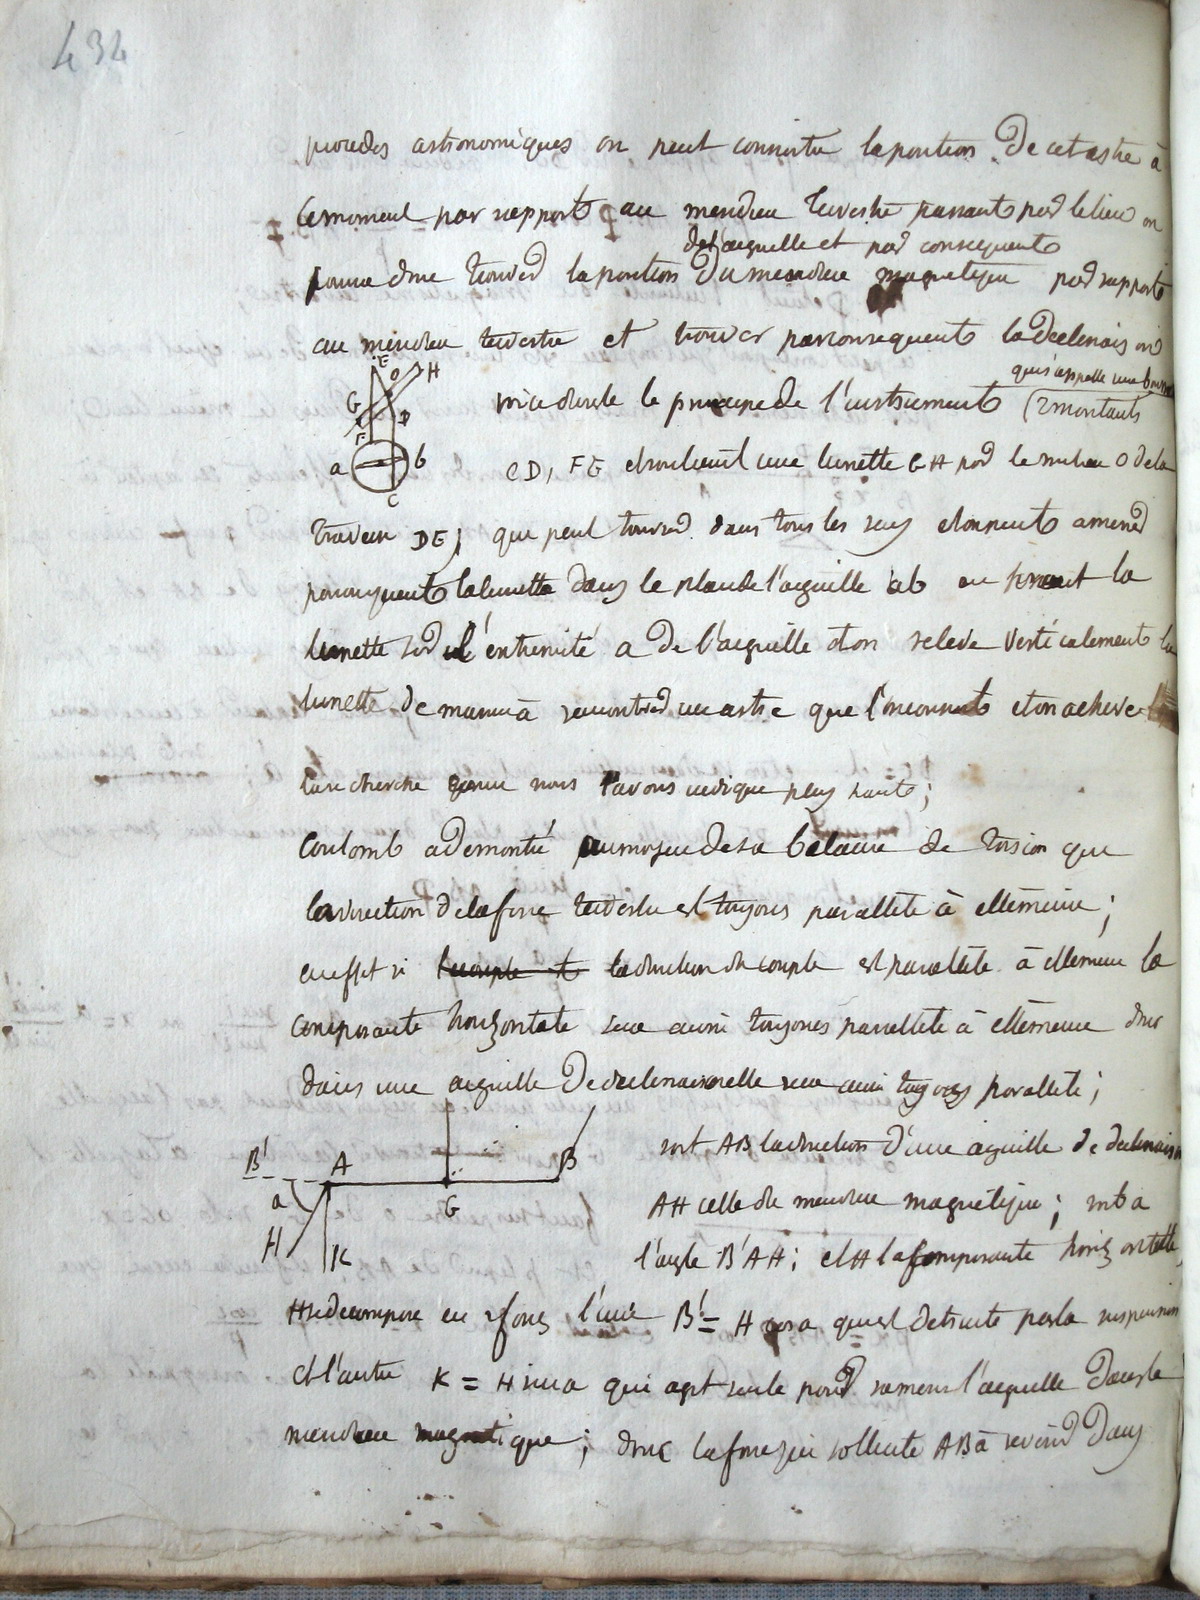 432
procedes astronomiques on peut connoitre la position de cet astre à
ce moment par rapport au meridien terrestre passant par le lieu on
de l'aiguille et par consequent
pourra donc trouver la position du meridien magnetique par rapport
au meridien terrestre et trouver par consequent la declinaison
qui s'appelle une
voici donc le principe de l'instrument (2 montants
CD, FE soutient une lunette GH par le milieu O de la
traverse DE, qui peut tourner dans tous les sens et on peut amener
par consequent la lunette dans le plan de l'aiguille ab en la
lunette sur l'extremité a de l'aiguille et on releve verticalement la
lunette de maniere à rencontrer un astre que l'on connoit et on acheve
la recherche comme nous l'avons indiqué plus haut;
Coulomb a demontré au moyen de sa balance de torsion que
la direction de la force terrestre est toujours parallele à elle même;
en effet si le couple t la direction du couple est parallele à elle même la
composante horizontale sera aussi toujours parallele à elle même donc
dans une aiguille de declinaison elle sera aussi toujours parallele;
soit AB la direction d'une aiguille de declinaison
AH celle du meridien magnétique; soit a
l'angle B'AH; et H la composante horizontale,
H se decompose en 2 forces l'une B' = H cos a qui est detruite par la suspension
et l'autre K = H sin a qui agit seule pour ramener l'aiguille dans le
meridien magnetique; donc la force qui sollicite AB à revenir dans
E
O
H
G
D
F
a
b
C
B'
A
B
a
G
H
K